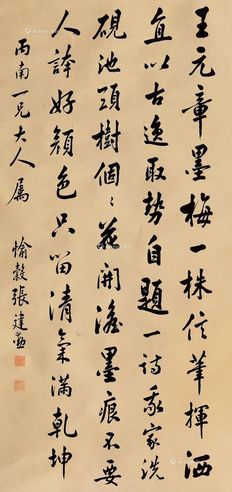 王元章墨梅一株信筆揮洒
直以古逸取勢自題一詩我家洗
硯池頭樹個〻花開澹墨痕不要
人誇好顏色只留清氣滿乾坤
丙南一兄大人屬
愉穀張建勳